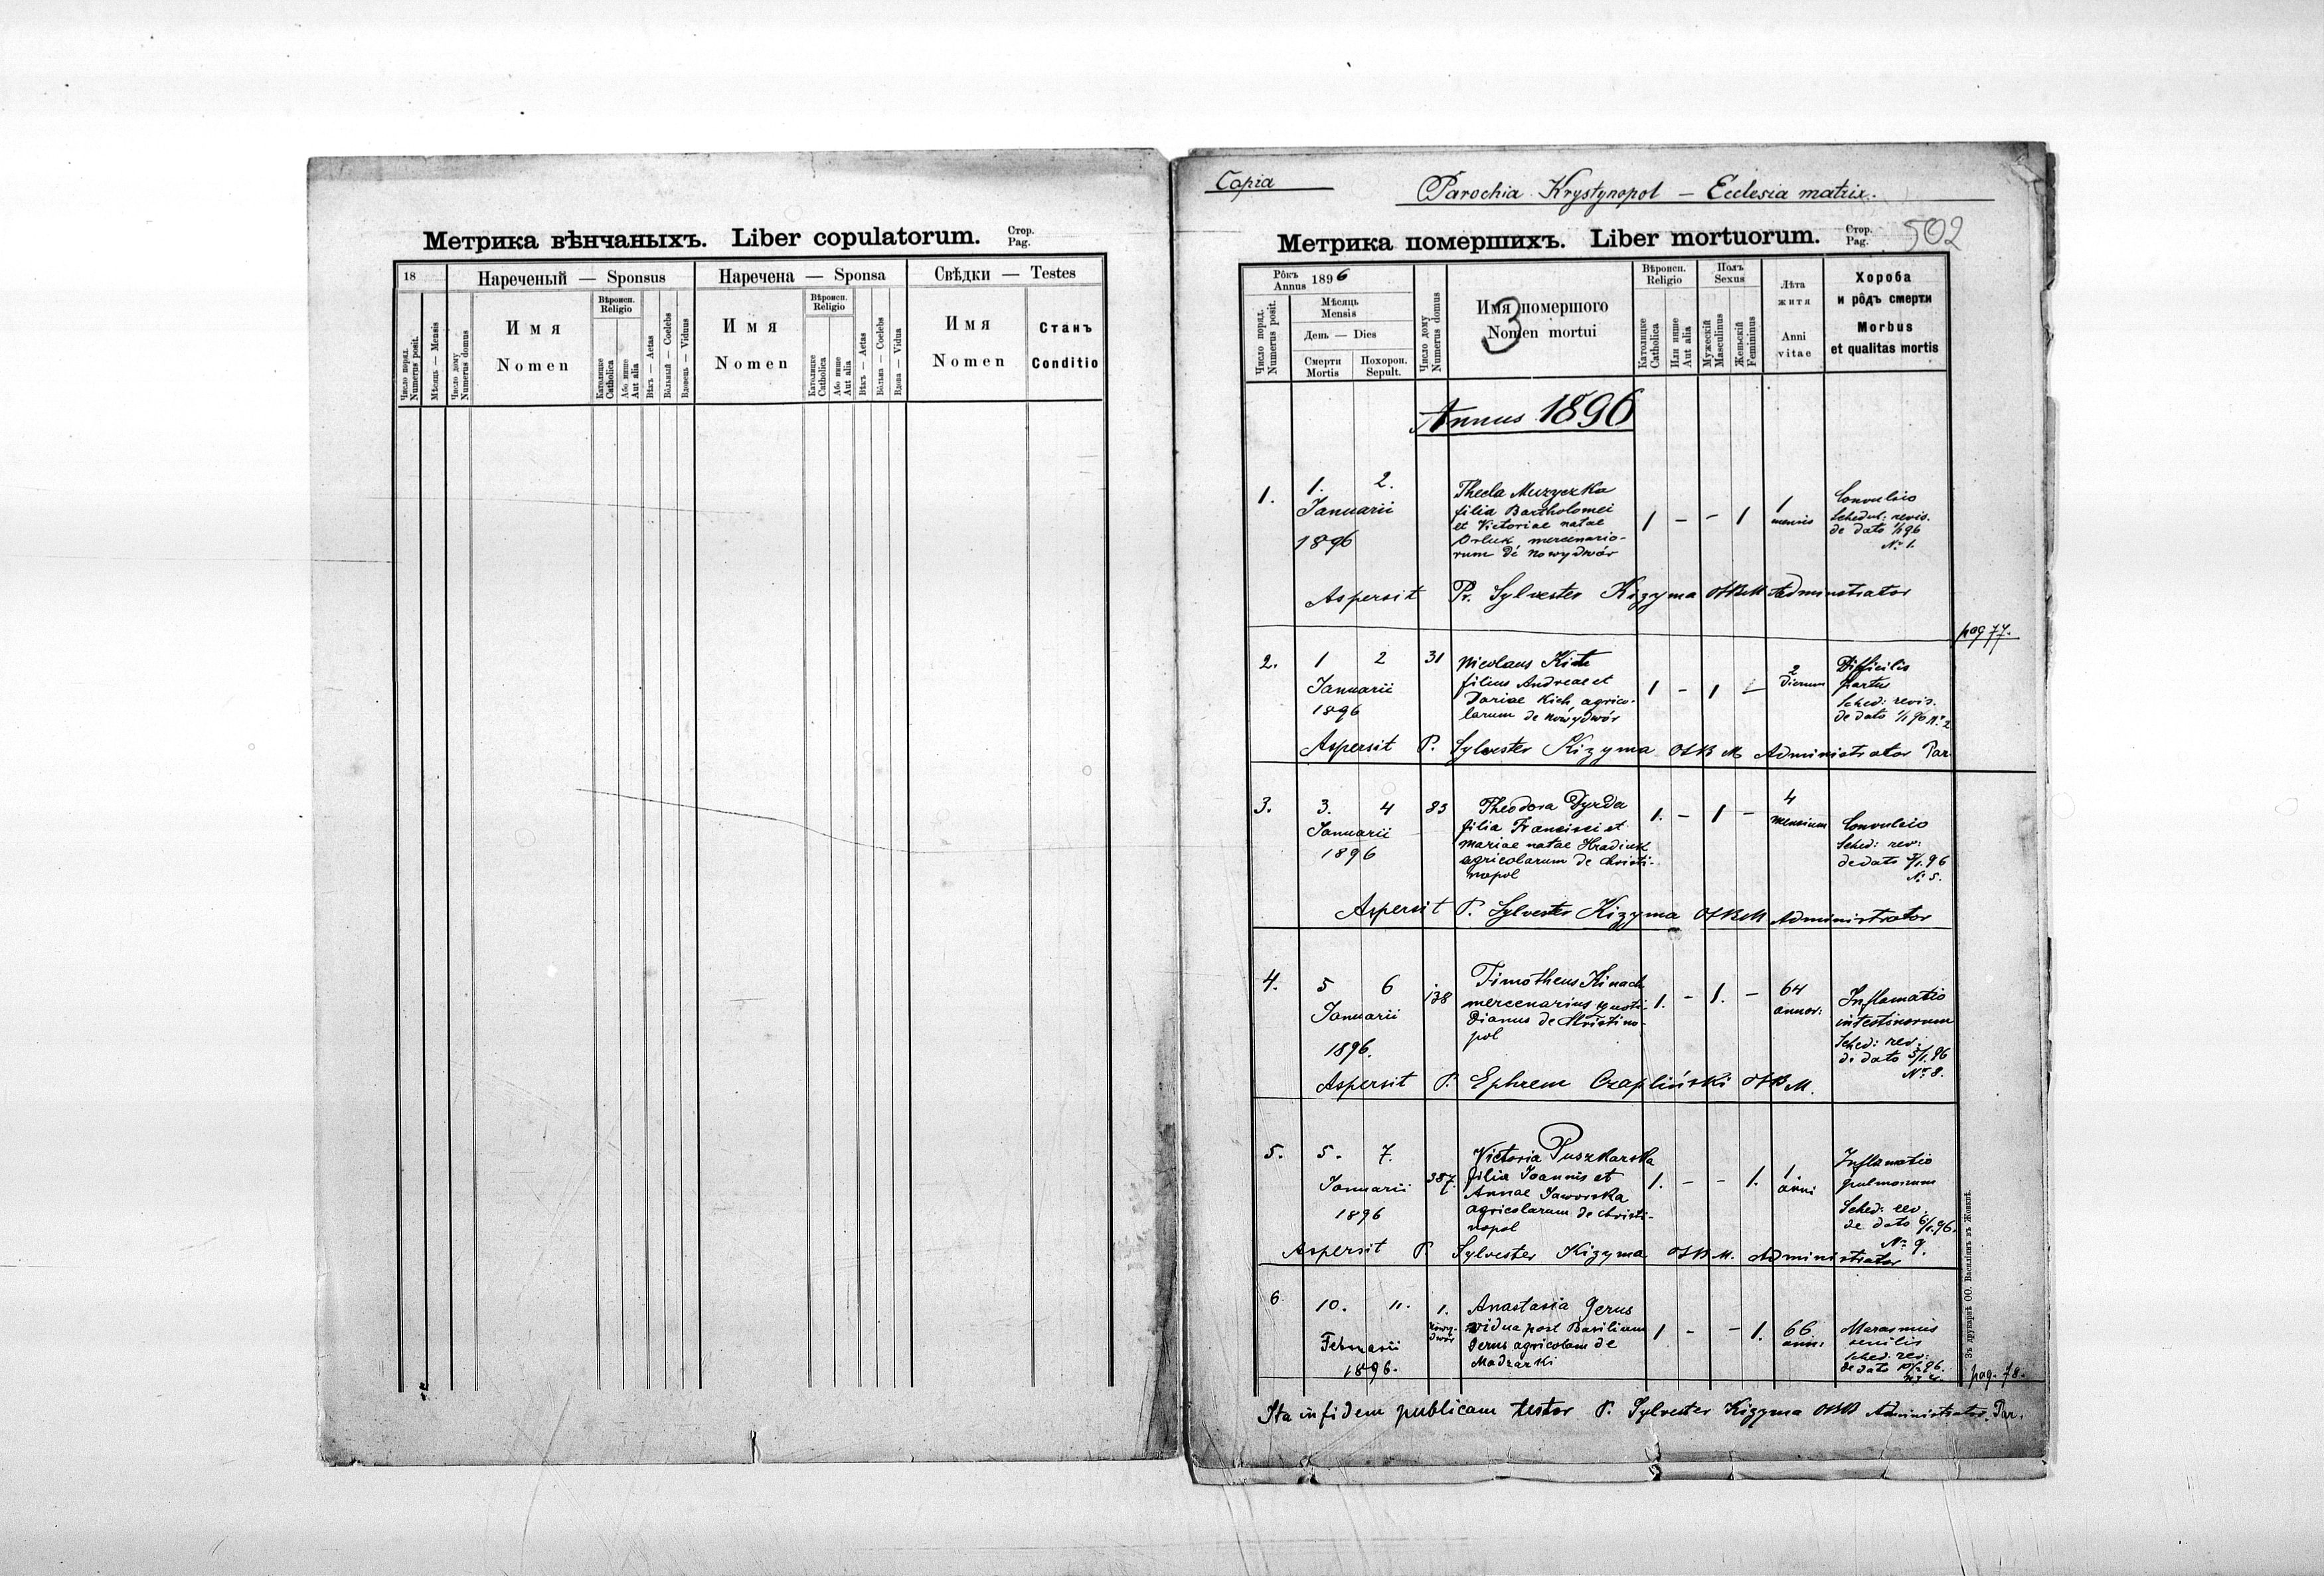 Метрика вѣнчаныхъ. Liber copulatorum. Стор. Pag.
18
Нареченый — Sponsus
Наречена — Sponsa
Свѣдки — Testes
Число поряд. Numerus posit.
Мѣсяць — Mensis
Число дому Numerus domus
Имя
Nomen
Вѣроисп. Religio
Католицке Catholica
Або инше Aut alia
Вѣкъ — Aetas
Вôльный — Coelebs
Вдовець — Viduus
Имя
Nomen
Вѣроисп. Religio
Католицке Catholica
Або инше Aut alia
Вѣкъ — Aetas
Вôльна — Coelebs
Вдова — Vidua
Имя
Nomen
Станъ
Conditio
Copia
Parochia Krystynopol — Ecclesia matrix.
Метрика помершихъ. Liber mortuorum. Стор. Pag. 502
Рôкъ Annus 1896
Число поряд. Numerus posit.
Мѣсяць
Mensis
День — Dies
Смерти Mortis
Похорон. Sepult.
Число дому Numerus domus
Имя помершого
Nomen mortui
3
Вѣроисп. Religio
Католицке Catholica
Или инше Aut alia
Полъ Sexus
Мужескій Masculinus
Женьскій Femininus
Лѣта
житя
Anni
vitae
Хороба
и рôдъ смерти
Morbus
et qualitas mortis
Annus 1896
1. 1. 2.
Januarii
1896
Thecla Muzyczka
filia Bartholomei
et Victoriae natae
Orluk mercenario-
rum de Nowydwór
1 - - 1
1 mensis
Convulsio
Schedul: revis.
de dato 1/1 96
No 1.
Aspersit Pr. Sylvester Kizyma OSBM Administrator
pag 77.
2. 1 2 31
Januarii
1896
Nicolaus Kich
filius Andreae et
Dariae Kich agrico-
larum de Nowydwór
1 - 1 -
2 dierum
Difficilis
partus
Sched: revis.
de dato 1/1 96 No 2
Aspersit P. Sylvester Kizyma OSBM Administrator Par.
3. 3. 4 83
Januarii
1896
Theodora Dyrda
filia Francisci et
Mariae natae Hradiuk
agricolarum de Christi-
nopol
1. - 1 -
4 mensium
Convulsio
Sched: rev:
de dato 3/1. 96
No 5.
Aspersit P. Sylvester Kizyma OSBM Administrator
4. 5 6 138
Januarii
1896.
Timotheus Kinach
mercenarius quoti-
dianus de Christino-
pol
1. - 1. -
64 annor:
Inflamatio
intestinorum
Sched: rev:
de dato 5/1. 96
No 8.
Aspersit P. Ephrem Czapliński OSBM.
5. 5. 7. 387.
Januarii
1896
Victoria Puszkarska
filia Joannis et
Annae Jaworska
agricolarum de Christi-
nopol
1. - - 1.
1. anni
Inflamatio
pulmonum
Sched: rev.
de dato 6/1. 96.
No 9.
Aspersit P Sylvester Kizyma OSBM. Administrator
6. 10. 11. 1.
Nowy-
dwór
Februarii
1896.
Anastasia Gerus
vidua post Basilium
Gerus agricolam de
Madzarki
1 - - 1.
66 ann:
Marasmus
senilis
Sched: rev:
de dato 10/2 96.
pag. 78.
Зъ друкарнѣ ОО. Василіянъ въ Жовквѣ.
Ita in fidem publicam testor P. Sylvester Kizyma OSBM Administrator. Par.